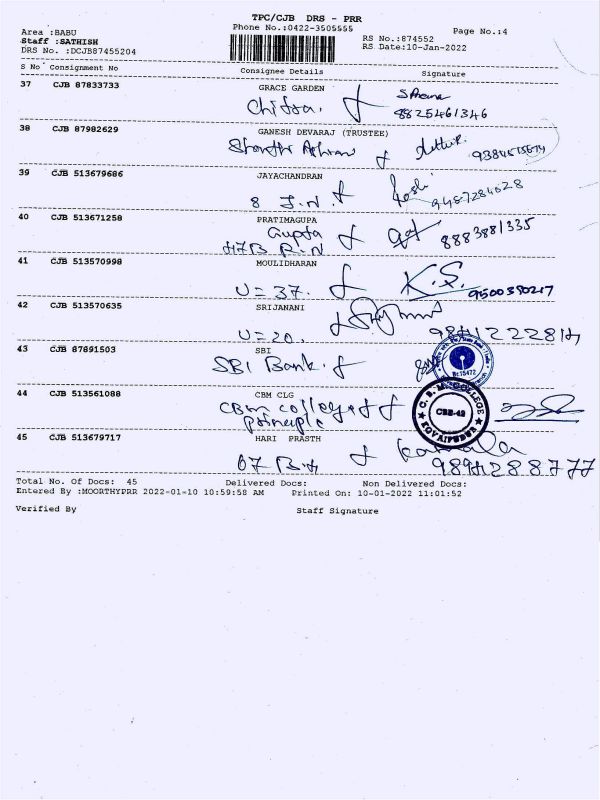 TPC/CJB DRS - PRR
Phone No.:0422-3505555
Page No.:4
Area :BABU
Staff :SATHISH
DRS No. :DCJB87455204
RS No.:874552
RS Date:10-Jan-2022
S No Consignment No Consignee Details Signature
37 CJB 87833733 GRACE GARDEN
Chitra.
8825461346
38 CJB 87982629 GANESH DEVARAJ (TRUSTEE)
39 CJB 513679686 JAYACHANDRAN
8 J.N.
9487284028
40 CJB 513671258 PRATIMAGUPA
Gupta
47B R.N
8883881335
41 CJB 513570998 MOULIDHARAN
U=37. K.S.
9500390217
42 CJB 513570635 SRIJANANI
U=20.
43 CJB 87891503 SBI
SBI Bank.
44 CJB 513561088 CBM CLG
CBM college
principle
C.B.M. COLLEGE
CBE-42
KOVAIPUDUR
45 CJB 513679717 HARI PRASTH
67 B.H
Kamala
9894288777
Total No. Of Docs: 45 Delivered Docs: Non Delivered Docs:
Entered By :MOORTHYPRR 2022-01-10 10:59:58 AM Printed On: 10-01-2022 11:01:52
Verified By Staff Signature